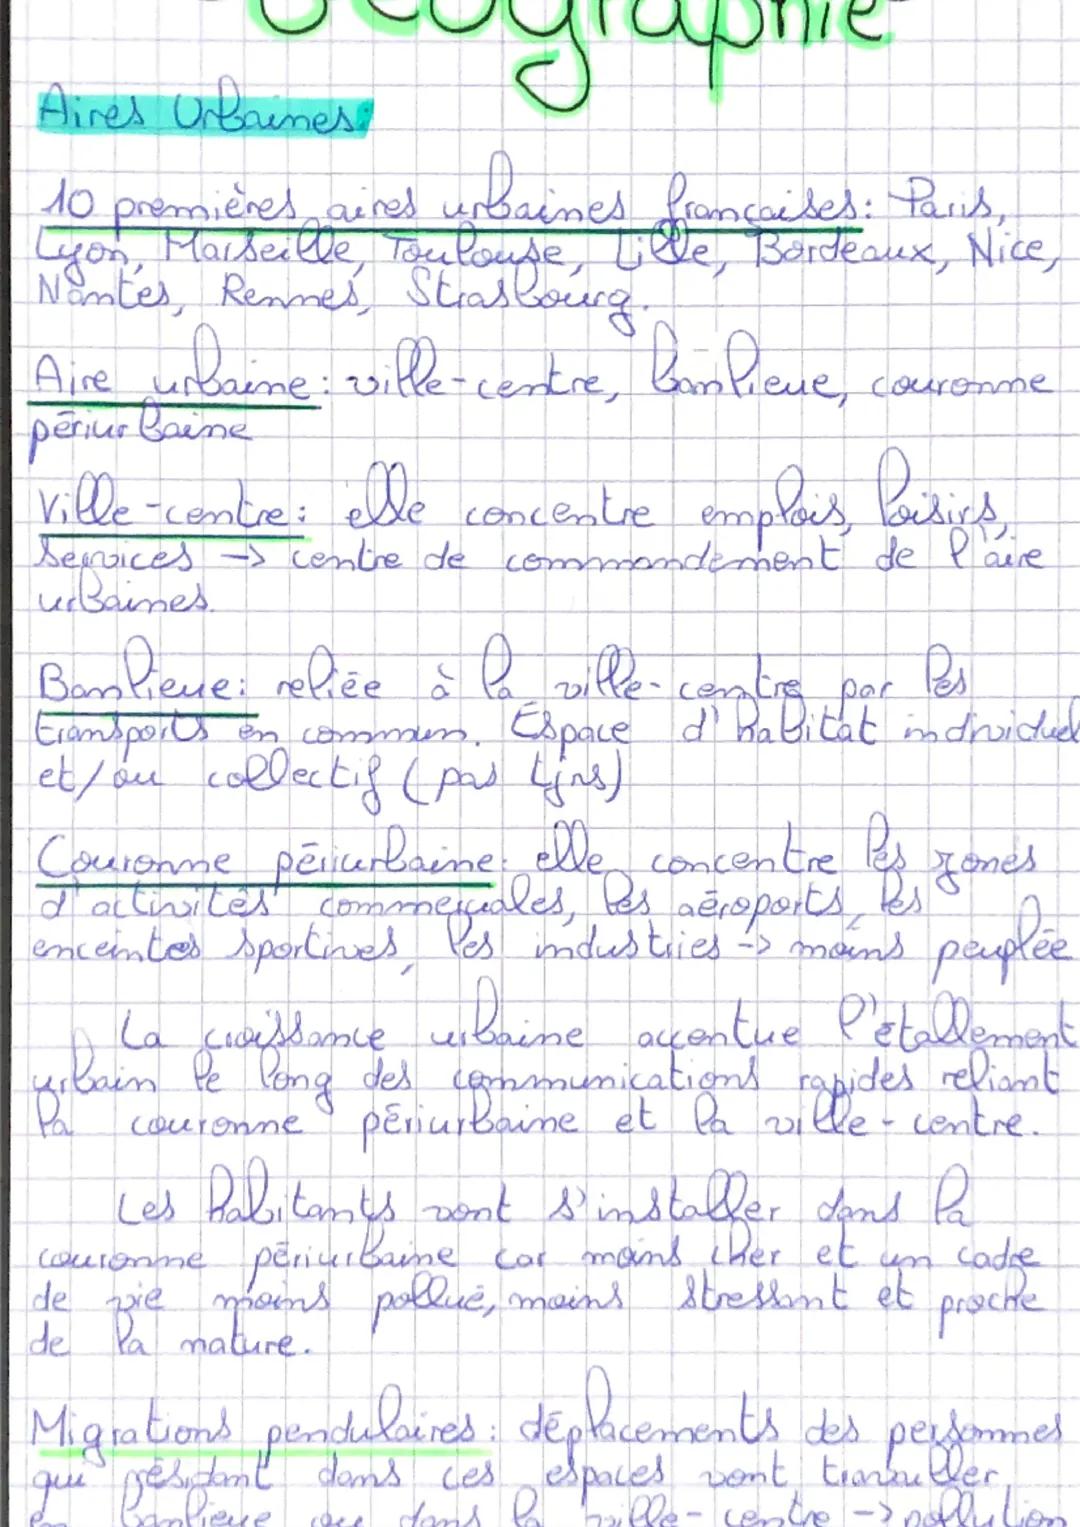 Géographie
Aires Urbaines:
10 premières aires urbaines françaises: Paris,
Lyon, Marseille, Toulouse, Lille, Bordeaux, Nice,
Nantes, Rennes, Strasbourg.
Aire urbaine: ville-centre, banlieue, couronne
périurbaine
Ville-centre: elle concentre emplois, loisirs,
services -> centre de commandement de l'aire
urbaines.
Banlieue: reliée à la ville-centre par les
transports en commun. Espace d'habitat individuel
et/ou collectif (pas tjrs)
Couronne périurbaine: elle concentre les zones
d'activités commerciales, les aéroports, les
enceintes sportives, les industries -> moins peuplée
La croissance urbaine accentue l'étallement
urbain le long des communications rapides reliant
la couronne périurbaine et la ville-centre.
Les habitants vont s'installer dans la
couronne périurbaine car moins cher et un cadre
de vie moins pollué, moins stressant et proche
de la nature.
Migrations pendulaires: déplacements des personnes
qui résidant dans ces espaces vont travailler
en banlieue ou dans la ville-centre -> pollution